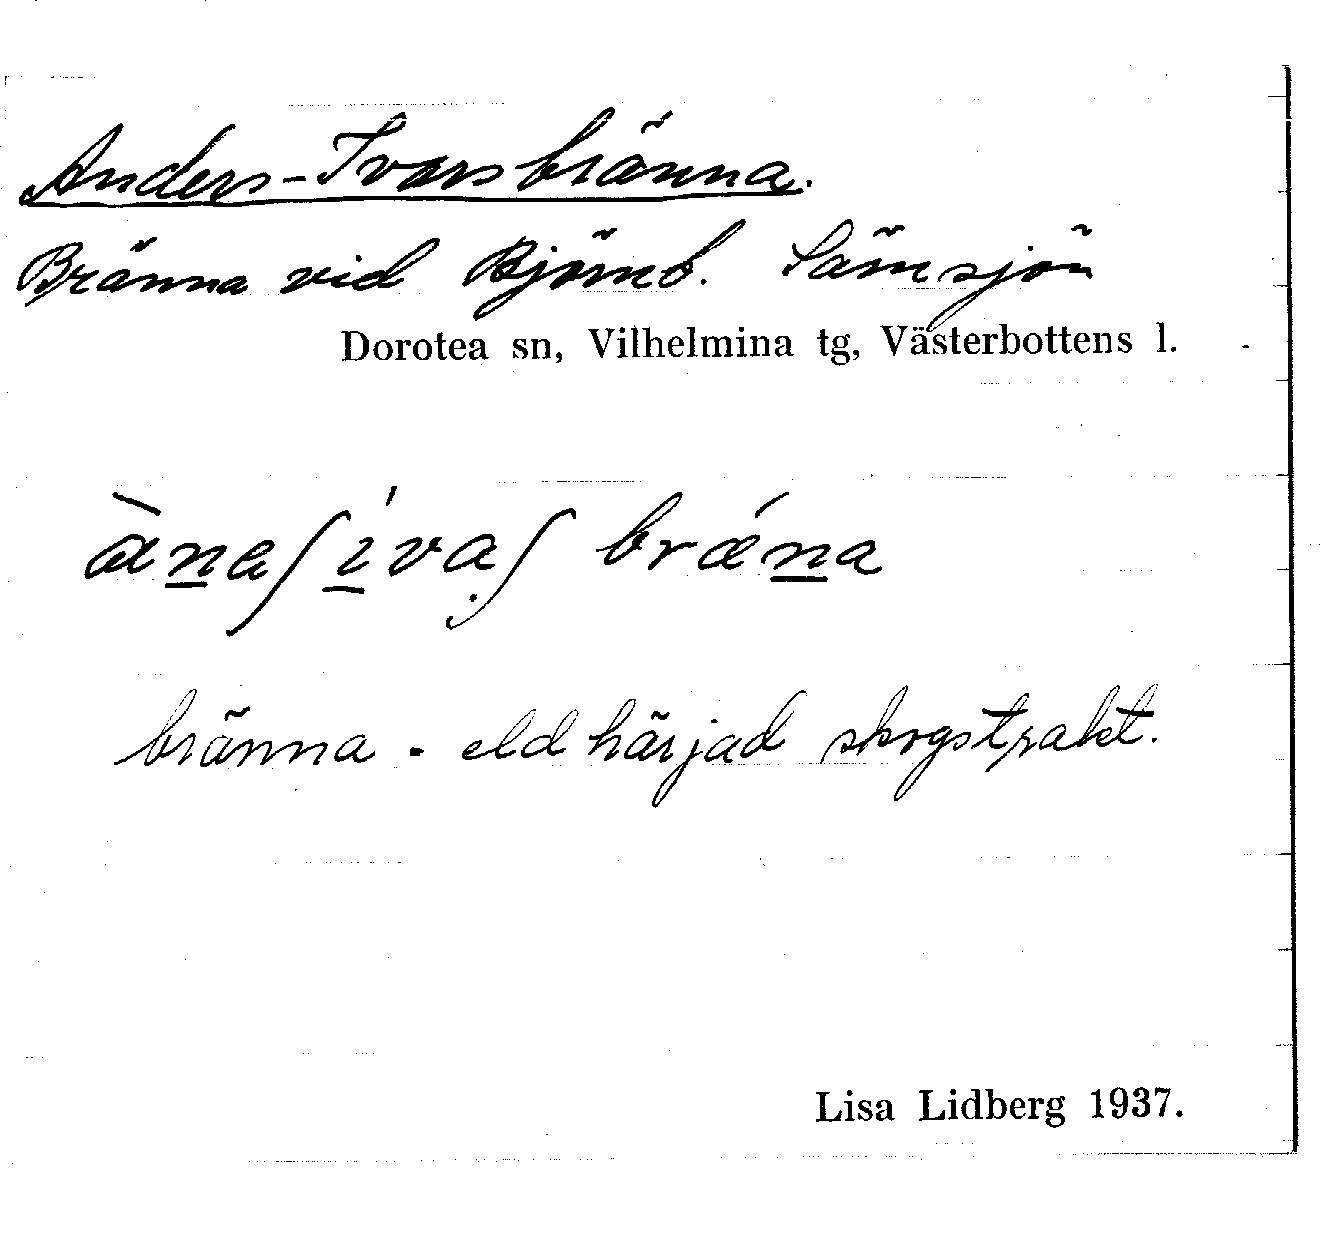 Anders-Ivarsbränna.
Bränna vid Björnb. Lämsjön
Dorotea sn, Vilhelmina tg, Västerbottens l.
àna∫ íva∫ bræ´na
bränna - eldhärjad skogstrakt.
Lisa Lidberg 1937.